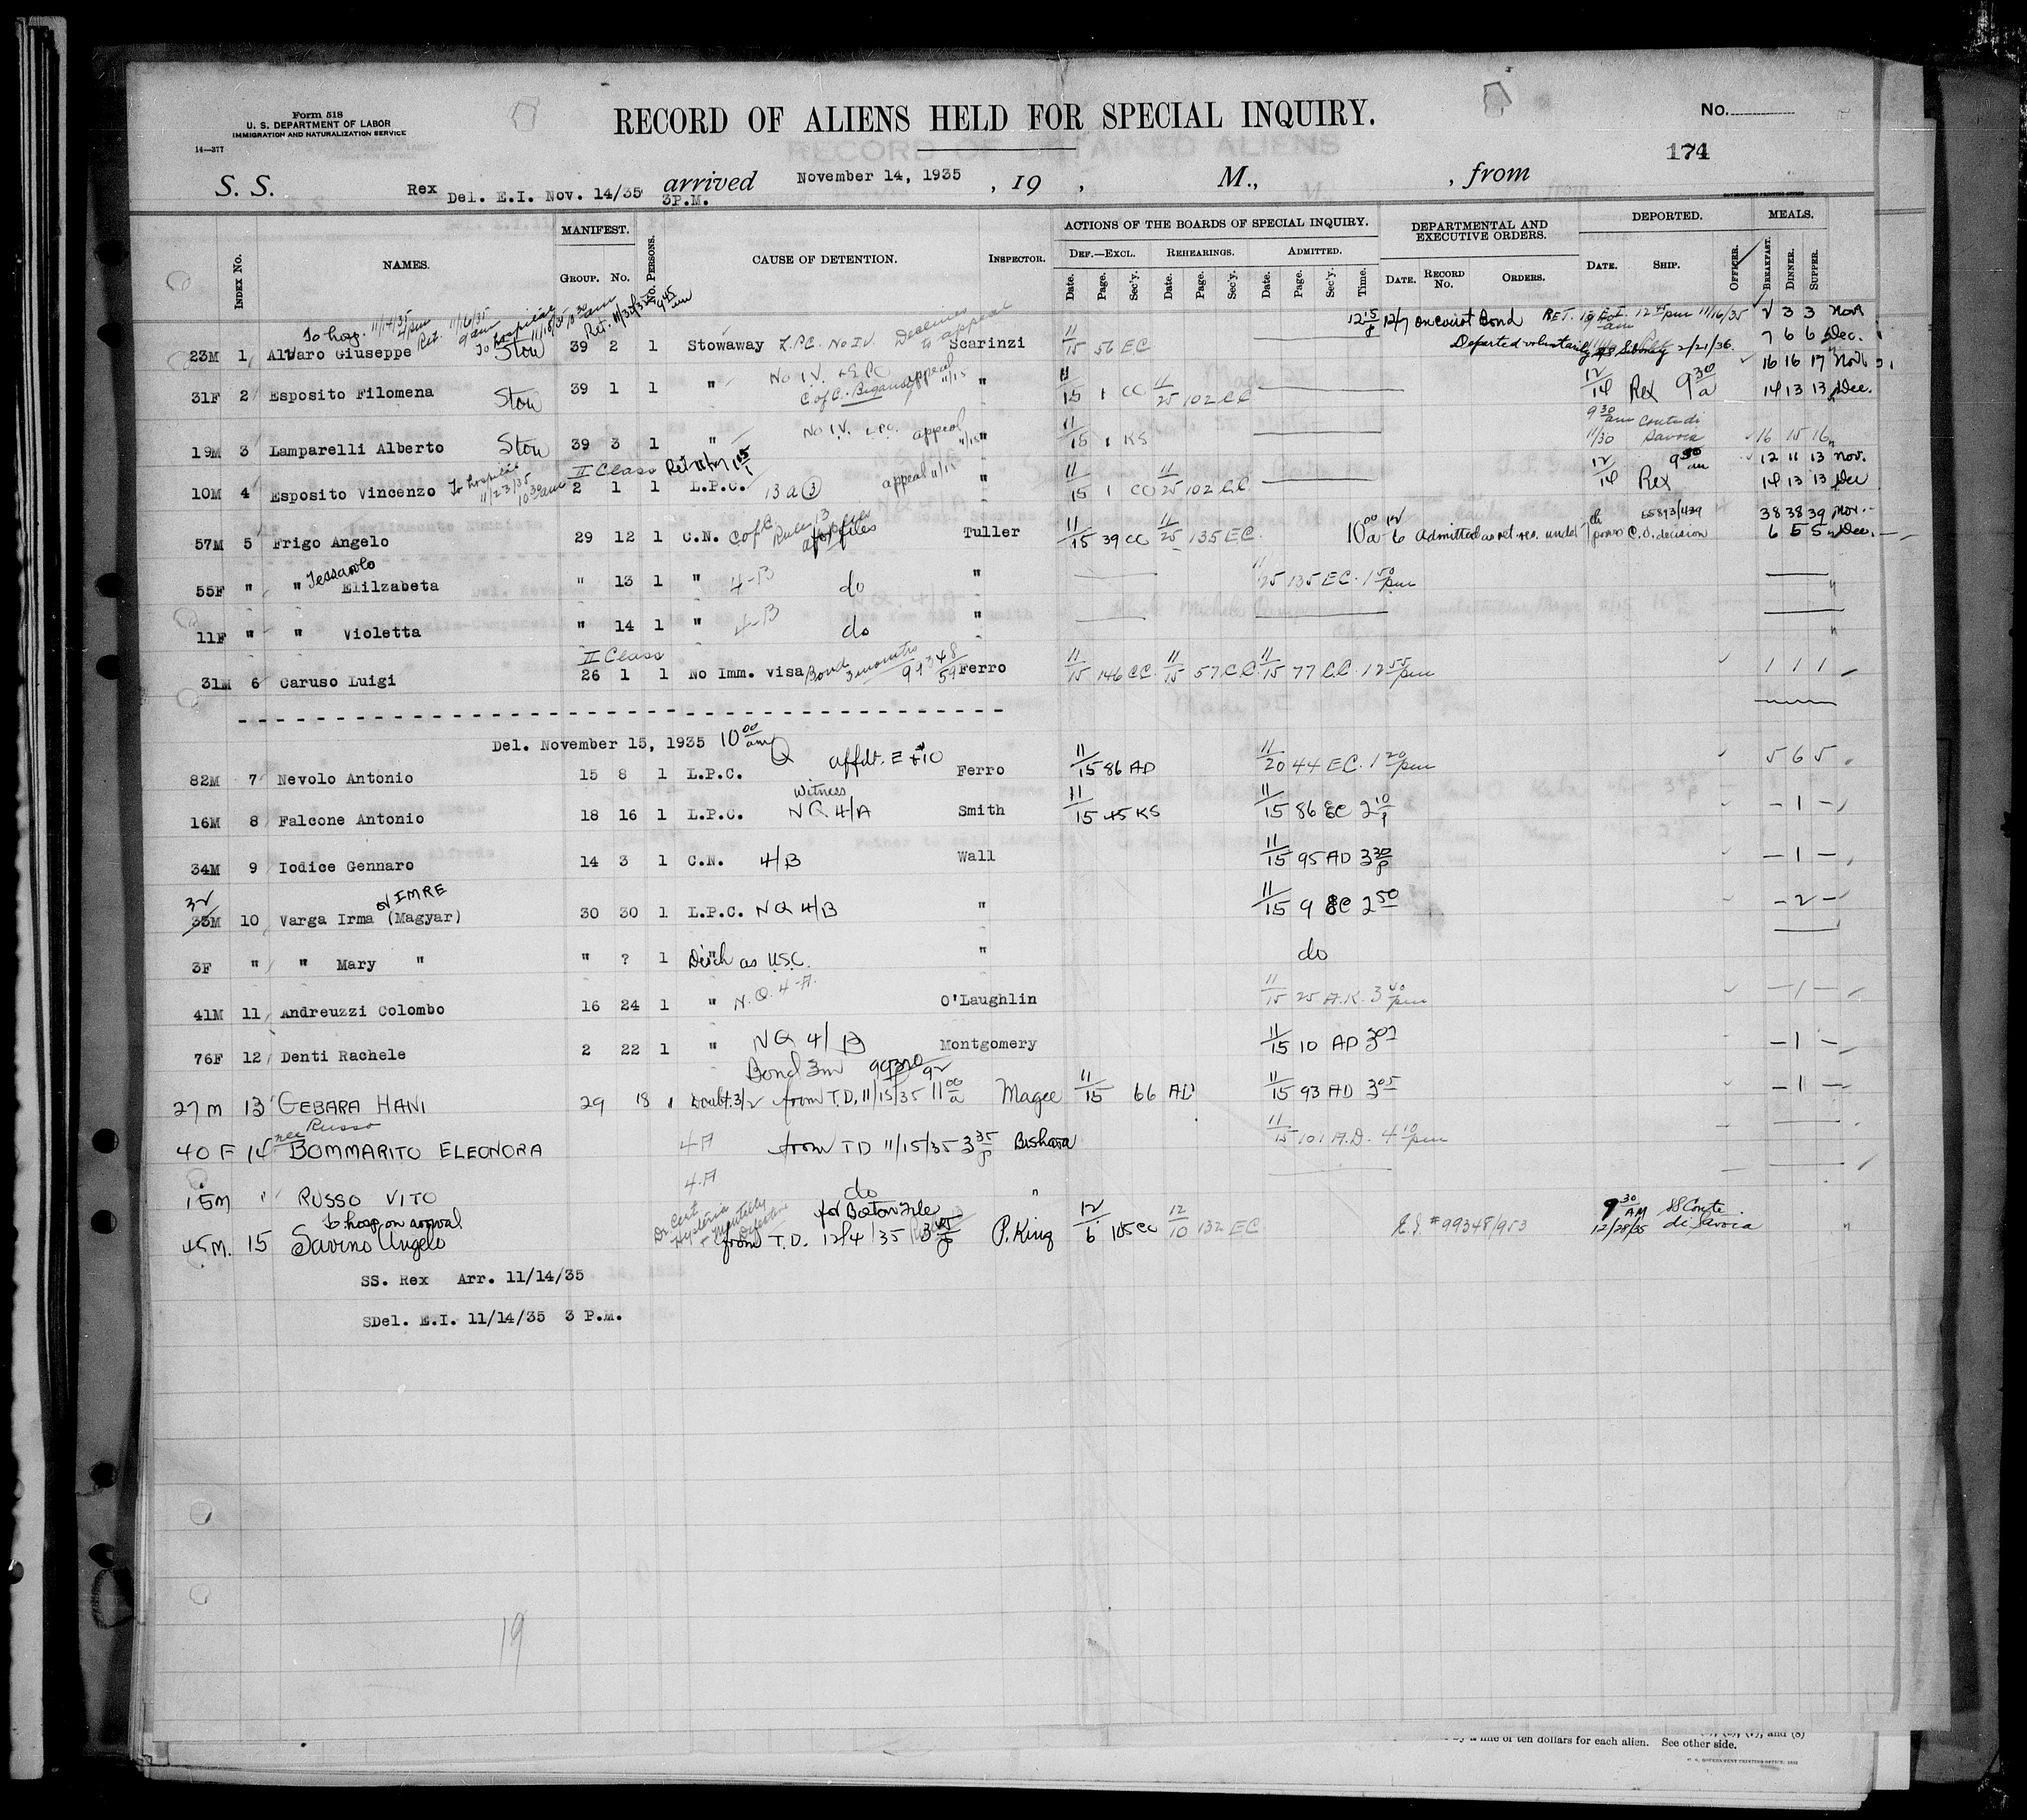 Form 518
U. S. DEPARTMENT OF LABOR
IMMIGRATION AND NATURALIZATION SERVICE
14—377
RECORD OF ALIENS HELD FOR SPECIAL INQUIRY.
No.
174
S. S. Rex Del. E.I. Nov. 14/35 3P.M. arrived November 14, 1935 , 19 , M., , from
INDEX No. NAMES. MANIFEST. GROUP. No. No. PERSONS. CAUSE OF DETENTION. INSPECTOR. ACTIONS OF THE BOARDS OF SPECIAL INQUIRY. DEF.—EXCL. Date. Page. Sec'y. REHEARINGS. Date. Page. Sec'y. ADMITTED. Date. Page. Sec'y. Time. DEPARTMENTAL AND EXECUTIVE ORDERS. DATE. RECORD No. ORDERS. DEPORTED. DATE. SHIP. OFFICER. MEALS. BREAKFAST. DINNER. SUPPER.
To hosp. 11/14/35 4 pm Ret. 11/16/35 9 am To hospital 11/18/35 Ret. 9 45 am
12 15 p 12/7 on court Bond RET. 12 25 pm 11/16/35 2 3 3 Nov
23M 1 Alvaro Giuseppe Stow 39 2 1 Stowaway L.P.C. No I.V. Declines to appeal Scarinzi 11/15 56 EC Departed voluntarily SS Siboney 2/21/36. 7 6 6 Dec.
16 16 17 Nov
31F 2 Esposito Filomena Stow 39 1 1 " No I.V. L.P.C. C of C. appeal 11/15 " 11/15 1 CC 11/25 102 CC 12/14 Rex 9 30 a 14 13 13 Dec.
19M 3 Lamparelli Alberto Stow 39 3 1 " No I.V. L.P.C. appeal 11/15 " 11/15 1 KS 9 30 am 11/30 Conte di Savoia 16 15 16
II Class
10M 4 Esposito Vincenzo To hospital 11/23/35 10 30 am 2 1 1 L.P.C. 13 a (3) appeal 11/15 " 11/15 1 CC 11/25 102 CC 12/14 Rex 9 30 am 12 11 13 Nov. 14 13 13 Dec
57M 5 Frigo Angelo 29 12 1 C.N. C of C Rules 13 Tuller 11/15 39 CC 11/25 135 EC. 10 00 a 12/6 Admitted as ret. res. under 7th proviso C.O. decision 55893/439 38 38 39 Nov. 6 5 5 Dec.
55F " " Tessarolo Elilzabeta " 13 1 " 4-B do " 11/25 135 EC. 1 50 pm "
11F " " Violetta " 14 1 " 4-B do " "
II Class
31M 6 Caruso Luigi 26 1 1 No Imm. visa Bond 3 months 99348/59 Ferro 11/15 146 CC. 11/15 57 C.C. 11/15 77 C.C. 12 55 pm 1 1 1
Del. November 15, 1935 10 00 am
82M 7 Nevolo Antonio 15 8 1 L.P.C. affdt. Ferro 11/15 86 AD 11/20 44 EC. 1 20 pm 5 6 5
16M 8 Falcone Antonio 18 16 1 L.P.C. witness NQ 4/A Smith 11/15 45 KS 11/15 86 EC 2 10 p - 1 -
34M 9 Iodice Gennaro 14 3 1 C.N. 4/B Wall 11/15 95 AD 3 30 p - 1 -
32
33M 10 Varga Irma or IMRE (Magyar) 30 30 1 L.P.C. NQ 4/B " 11/15 9 EC 2 50 - 2 -
3F " " Mary " " ? 1 Disch as U.S.C. " do
41M 11 Andreuzzi Colombo 16 24 1 " N.Q. 4-A. O'Laughlin 11/15 25 A.K. 3 40 pm - 1 -
76F 12 Denti Rachele 2 22 1 " NQ 4/B Montgomery 11/15 10 AD - 1 -
Bond 3m
27M 13 GEBARA HANI 29 18 1 Doubt. 3/2 from T.D. 11/15/35 11 00 a Magee 11/15 66 AD 11/15 93 AD 3 05 - 1 -
40 F 14 nee Russo BOMMARITO ELEONORA 4A from TD 11/15/35 3 35 p Bishara 11/15 101 A.D. 4 10 pm
15M " RUSSO VITO 4A do "
To hosp on arrival
45M. 15 Savino Angelo Dr Cert Hysteria + Mentally Defective for Boston File from T.D. 12/4/35 P. King 12/6 105 CC 12/10 132 EC E.I. #99348/953 9 30 AM 12/28/35 SS Conte di Savoia "
SS. Rex Arr. 11/14/35
SDel. E.I. 11/14/35 3 P.M.
19
of ten dollars for each alien. See other side.